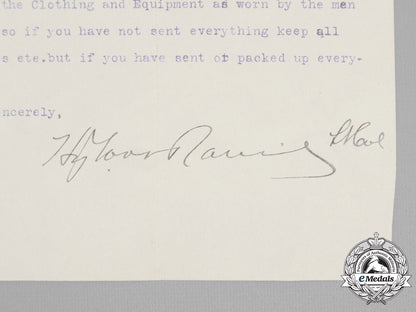 the Clothing and Equipment as worn by the men
so if you have not sent everything keep all
s ete.but if you have sent or packed up every-
ncerely,
eMedals